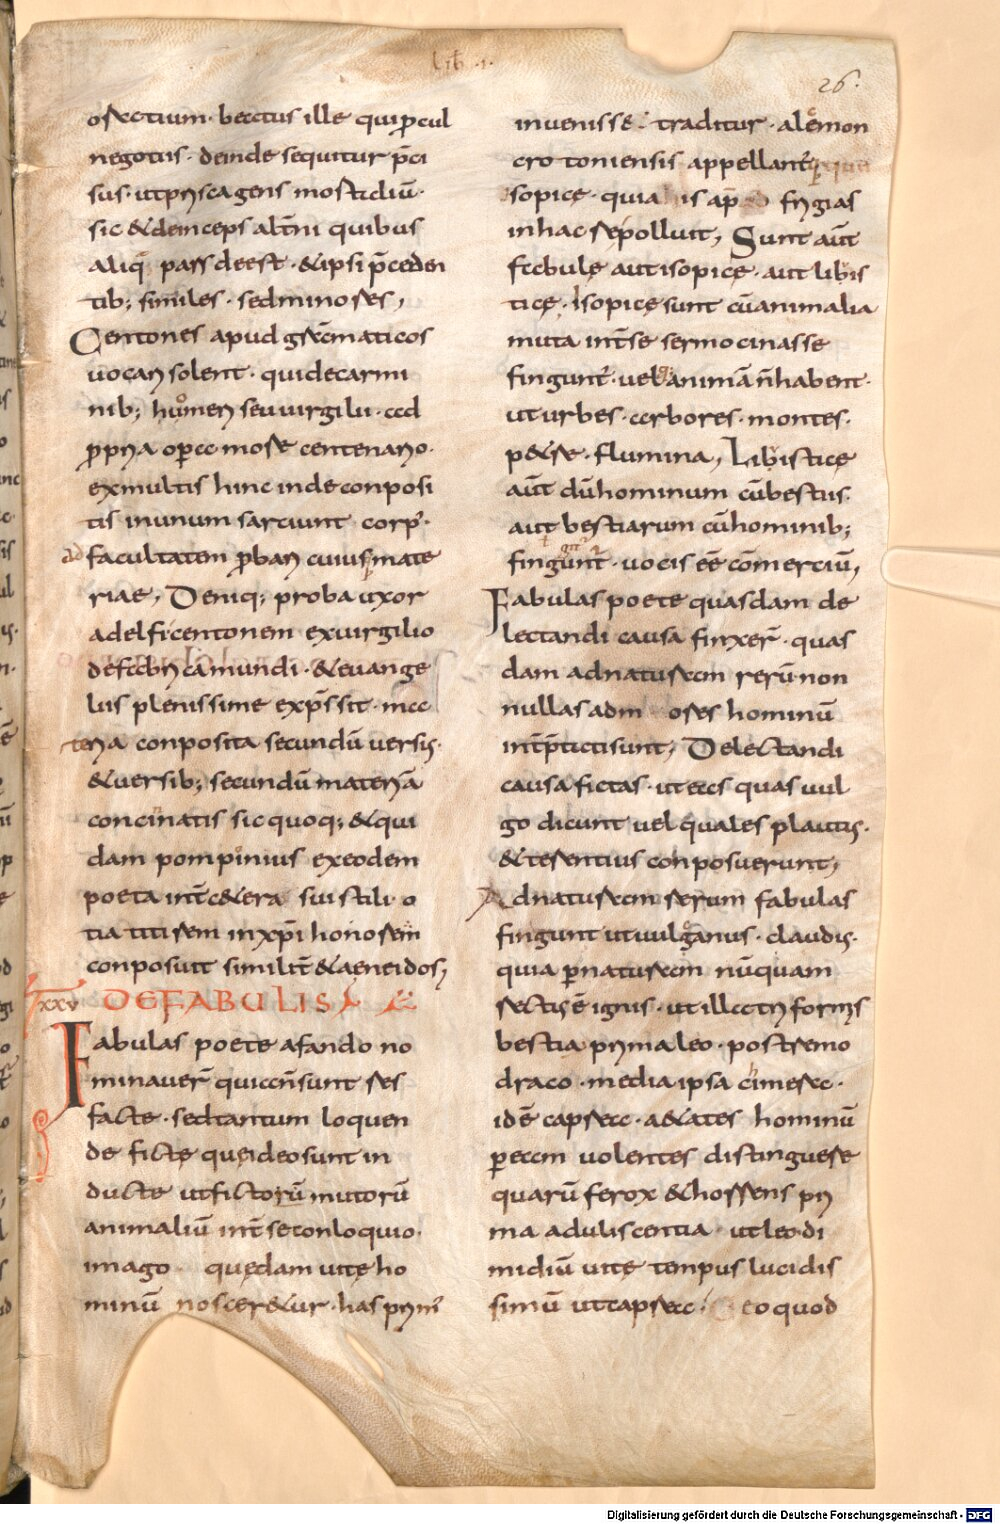 Lib · i ·
26.
osectium · beatus ille qui pcul
negotiis · deinde sequitur p̄ci
sus · ut priscagens mortaliū ·
sic & deinceps alt̄ni quibus
aliq̄ pars deest · & ipsi p̄ceden
tib; similes · sed minores,
Centones apud gramaticos
uocari solent · qui de carmi
nib; homeri seu uirgilii · ad
propria opera more centenario ·
ex multis hinc inde conposi
tis in unum sarciunt corp' ·
ad facultatem pbari cuiusmate
riae, Deniq; proba uxor
adelfi centonem ex uirgilio
de fabrica mundi · & euange
liis plenissime exp̄ssit · ma
teria conposita secundū uersus ·
& uersib; secundū materiā
concinatis sic quoq; & qui
dam pompinius ex eodem
poeta int̄ cetera sui stili o
tia titirem in xp̄i honorem
conposuit similit̄ & aeneidos,
XXV DE FABULIS
Fabulas poete afando no
minauer̄ quia n̄ sunt res
facte · sed tantum loquen
de ficte que ideo sunt in
ducte ut fictorū mutorū
animaliū int̄ se conloquio ·
imago quedam uite ho
minū nosceretur · has prim'
inuenisse · traditur · alemon
crotoniensis appellant̄
isopice · quia is ap̄ frigias
in hac re polluit, Sunt aūt
fabule aut isopice · aut libis
tice · Isopice sunt cū animalia
muta int̄ se sermocinasse
fingunt̄ · uel animā n̄ habent ·
ut urbes · arbores · montes ·
petre · flumina, Libistice
aūt dū hominum cū bestiis ·
aut bestiarum cū hominib;
fingunt̄ · uocis ee̅ com̄erciū,
Fabulas poete quasdam de
lectandi causa finxer̄ · quas
dam ad naturam rerū non
nullas ad m ores hominū
int̄p̄tati sunt, Delectandi
causa fictas · ut eas quas uul
go dicunt uel quales plautus ·
& terentius conposuerunt,
Ad naturam rerum fabulas
fingunt ut uulganus · claudus ·
quia p naturam nūquam
rectus ē ignis · ut illa triformis
bestia prima leo · postremo
draco · media ipsa cimera ·
idē capra · aetates hominū
p eam uolentes distinguere
quarū ferox & horrens pri
ma aduliscentia · ut leo di
midiū uite tempus lucidis
simū ut capra · eo quod
Digitalisierung gefördert durch die Deutsche Forschungsgemeinschaft - DFG